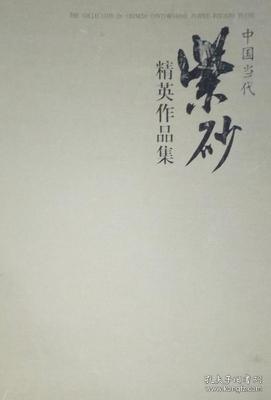 THE COLLECTION OF CHINESE CONTEMPORARY
中国当代
紫砂
精英作品集
孔夫子旧书网